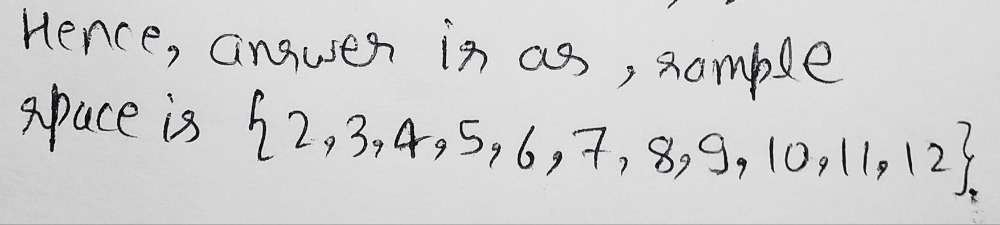 Hence, answer is as, sample
space is {2,3,4,5,6,7,8,9,10,11,12}.